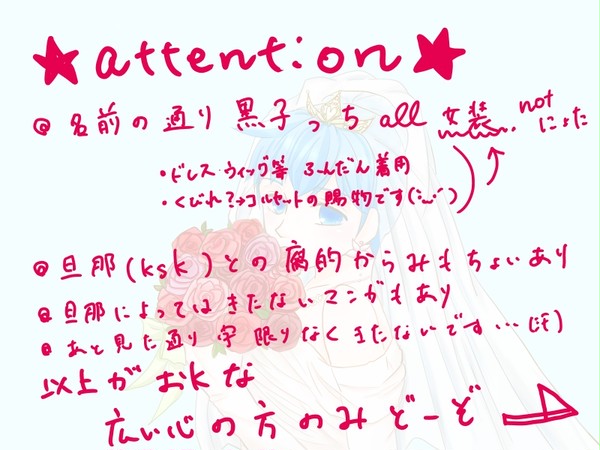 ★attention★
◎名前の通り 黒子っち all 女装. not にょた
・ドレス・ウィッグ等 ふんだん着用
・くびれ?→コルセットの賜物です(
◎旦那(ksk)との腐的からみもちょいあり
◎旦那によってはきたないマンガもあり
◎あと見た通り字限りなくきたないです…(
以上がおkな
広い心の方のみどーぞ